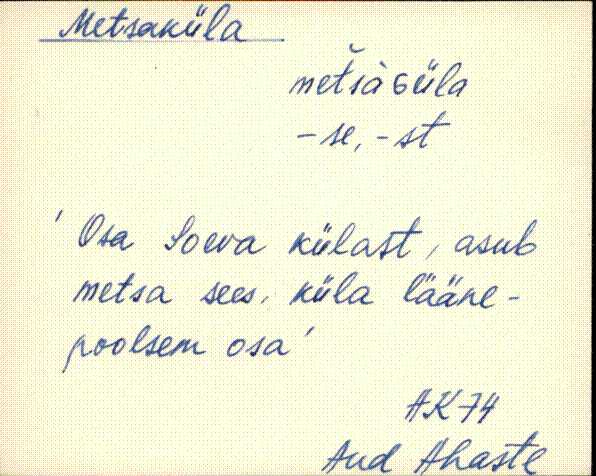 Metsaküla
metsàGüla
-se, -st
' Osa Soeva külast, asub
metsa sees, küla lääne-
poolsem osa'
AK 74
Aud Ahaste